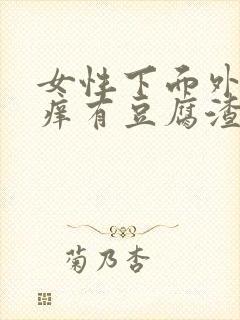 女性下面外
痒有豆腐渣
菊乃杏